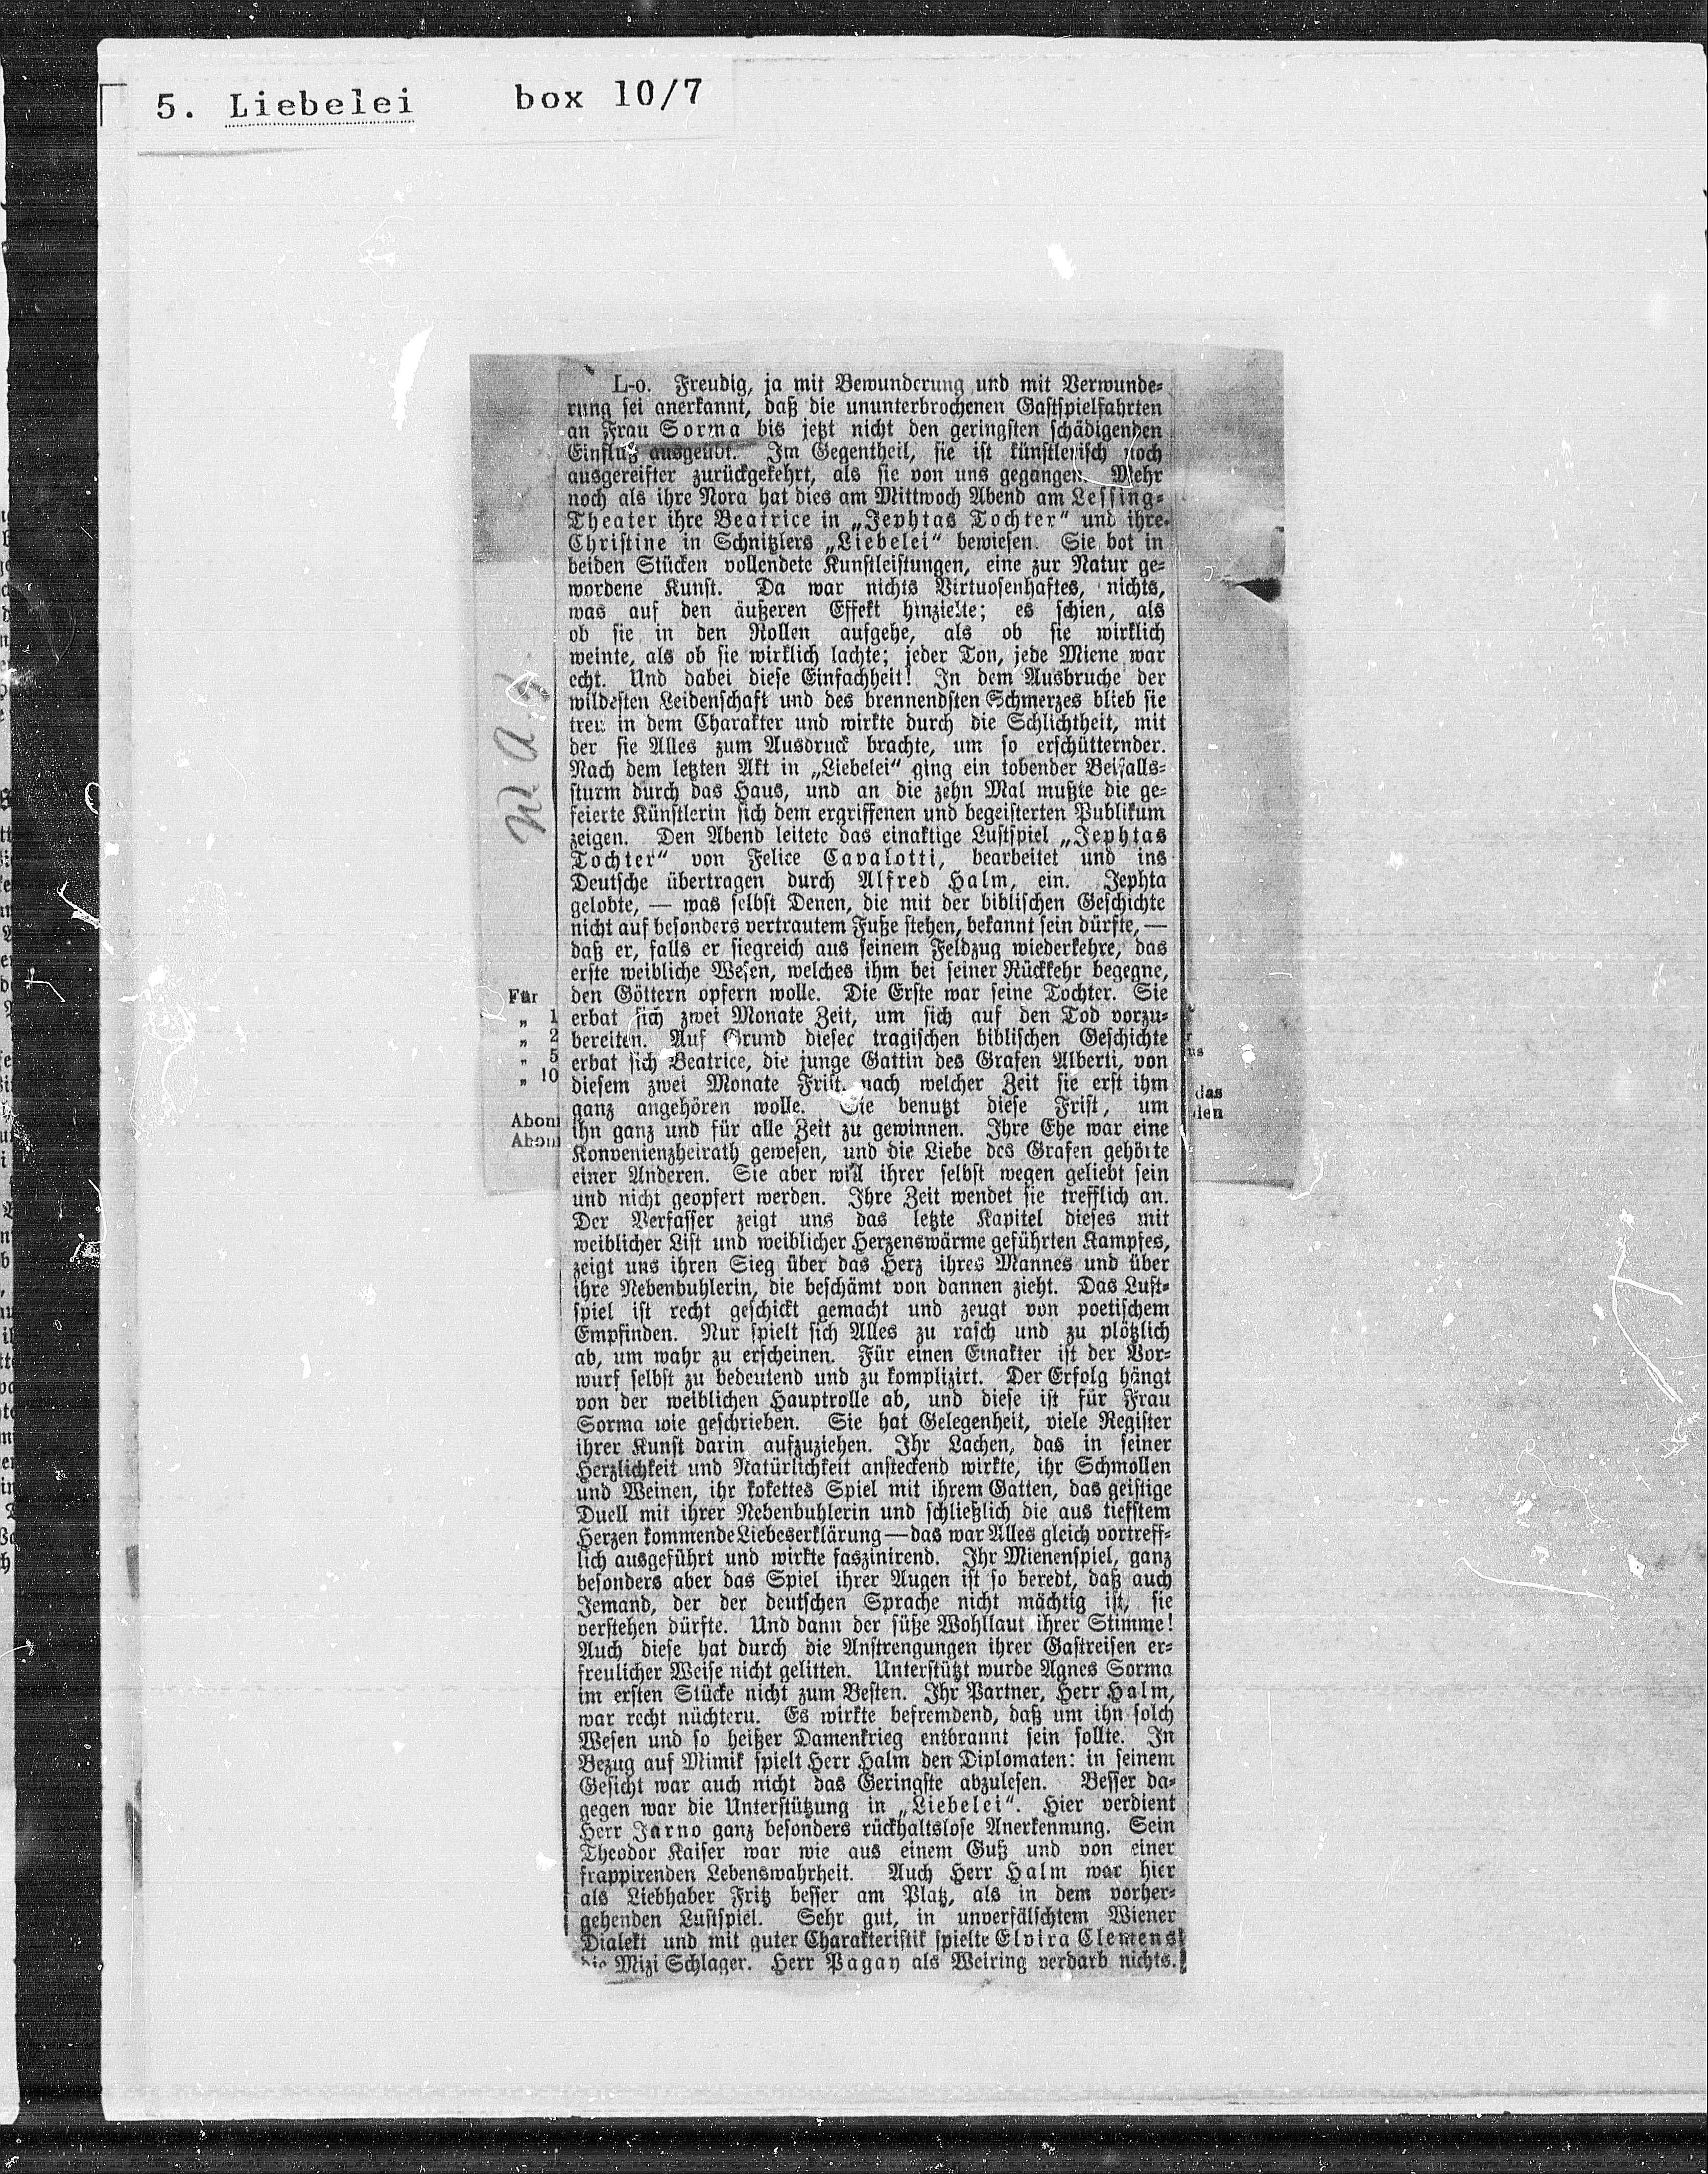 5. Liebelei box 10/7
L-o. Freudig, ja mit Bewunderung und mit Verwunde-
rung sei anerkannt, daß die ununterbrochenen Gastspielfahrten
an Frau Sorma bis jetzt nicht den geringsten schädigenden
Einfluß ausgeübt. Im Gegentheil, sie ist künstlerisch noch
ausgereifter zurückgekehrt, als sie von uns gegangen. Mehr
noch als ihre Nora hat dies am Mittwoch Abend am Lessing-
Theater ihre Beatrice in „Jephtas Tochter" und ihre
Christine in Schnitzlers „Liebelei" bewiesen. Sie bot in
beiden Stücken vollendete Kunstleistungen, eine zur Natur ge-
wordene Kunst. Da war nichts Virtuosenhaftes, nichts,
was auf den äußeren Effekt hinzielte; es schien, als
ob sie in den Rollen aufgehe, als ob sie wirklich
weinte, als ob sie wirklich lachte; jeder Ton, jede Miene war
echt. Und dabei diese Einfachheit! In dem Ausbruche der
wildesten Leidenschaft und des brennendsten Schmerzes blieb sie
treu in dem Charakter und wirkte durch die Schlichtheit, mit
der sie Alles zum Ausdruck brachte, um so erschütternder.
Nach dem letzten Akt in „Liebelei" ging ein tobender Beifalls-
sturm durch das Haus, und an die zehn Mal mußte die ge-
feierte Künstlerin sich dem ergriffenen und begeisterten Publikum
zeigen. Den Abend leitete das einaktige Lustspiel „Jephtas
Tochter" von Felice Cavalotti, bearbeitet und ins
Deutsche übertragen durch Alfred Halm, ein. Jephta
gelobte, — was selbst Denen, die mit der biblischen Geschichte
nicht auf besonders vertrautem Fuße stehen, bekannt sein dürfte, —
daß er, falls er siegreich aus seinem Feldzug wiederkehre, das
erste weibliche Wesen, welches ihm bei seiner Rückkehr begegne,
den Göttern opfern wolle. Die Erste war seine Tochter. Sie
erbat sich zwei Monate Zeit, um sich auf den Tod vorzu-
bereiten. Auf Grund dieser tragischen biblischen Geschichte
erbat sich Beatrice, die junge Gattin des Grafen Alberti, von
diesem zwei Monate Frist, nach welcher Zeit sie erst ihm
ganz angehören wolle. Sie benutzt diese Frist, um
ihn ganz und für alle Zeit zu gewinnen. Ihre Ehe war eine
Konvenienzheirath gewesen, und die Liebe des Grafen gehörte
einer Anderen. Sie aber will ihrer selbst wegen geliebt sein
und nicht geopfert werden. Ihre Zeit wendet sie trefflich an.
Der Verfasser zeigt uns das letzte Kapitel dieses mit
weiblicher List und weiblicher Herzenswärme geführten Kampfes,
zeigt uns ihren Sieg über das Herz ihres Mannes und über
ihre Nebenbuhlerin, die beschämt von dannen zieht. Das Lust-
spiel ist recht geschickt gemacht und zeugt von poetischem
Empfinden. Nur spielt sich Alles zu rasch und zu plötzlich
ab, um wahr zu erscheinen. Für einen Einakter ist der Vor-
wurf selbst zu bedeutend und zu komplizirt. Der Erfolg hängt
von der weiblichen Hauptrolle ab, und diese ist für Frau
Sorma wie geschrieben. Sie hat Gelegenheit, viele Register
ihrer Kunst darin aufzuziehen. Ihr Lachen, das in seiner
Herzlichkeit und Natürlichkeit ansteckend wirkte, ihr Schmollen
und Weinen, ihr kokettes Spiel mit ihrem Gatten, das geistige
Duell mit ihrer Nebenbuhlerin und schließlich die aus tiefstem
Herzen kommende Liebeserklärung — das war Alles gleich vortreff-
lich ausgeführt und wirkte faszinirend. Ihr Mienenspiel, ganz
besonders aber das Spiel ihrer Augen ist so beredt, daß auch
Jemand, der der deutschen Sprache nicht mächtig ist, sie
verstehen dürfte. Und dann der süße Wohllaut ihrer Stimme!
Auch diese hat durch die Anstrengungen ihrer Gastreisen er-
freulicher Weise nicht gelitten. Unterstützt wurde Agnes Sorma
im ersten Stücke nicht zum Besten. Ihr Partner, Herr Halm,
war recht nüchteru. Es wirkte befremdend, daß um ihn solch
Wesen und so heißer Damenkrieg entbrannt sein sollte. In
Bezug auf Mimik spielt Herr Halm den Diplomaten: in seinem
Gesicht war auch nicht das Geringste abzulesen. Besser da-
gegen war die Unterstützung in „Liebelei". Hier verdient
Herr Jarno ganz besonders rückhaltslose Anerkennung. Sein
Theodor Kaiser war wie aus einem Guß und von einer
frappirenden Lebenswahrheit. Auch Herr Halm war hier
als Liebhaber Fritz besser am Platz, als in dem vorher-
gehenden Lustspiel. Sehr gut, in unverfälschtem Wiener
Dialekt und mit guter Charakteristik spielte Elvira Clemens
die Mizi Schlager. Herr Pagay als Weiring verdarb nichts.
Für
„ 1
„ 2
„ 5
„ 10
Abon
Abon
das
den